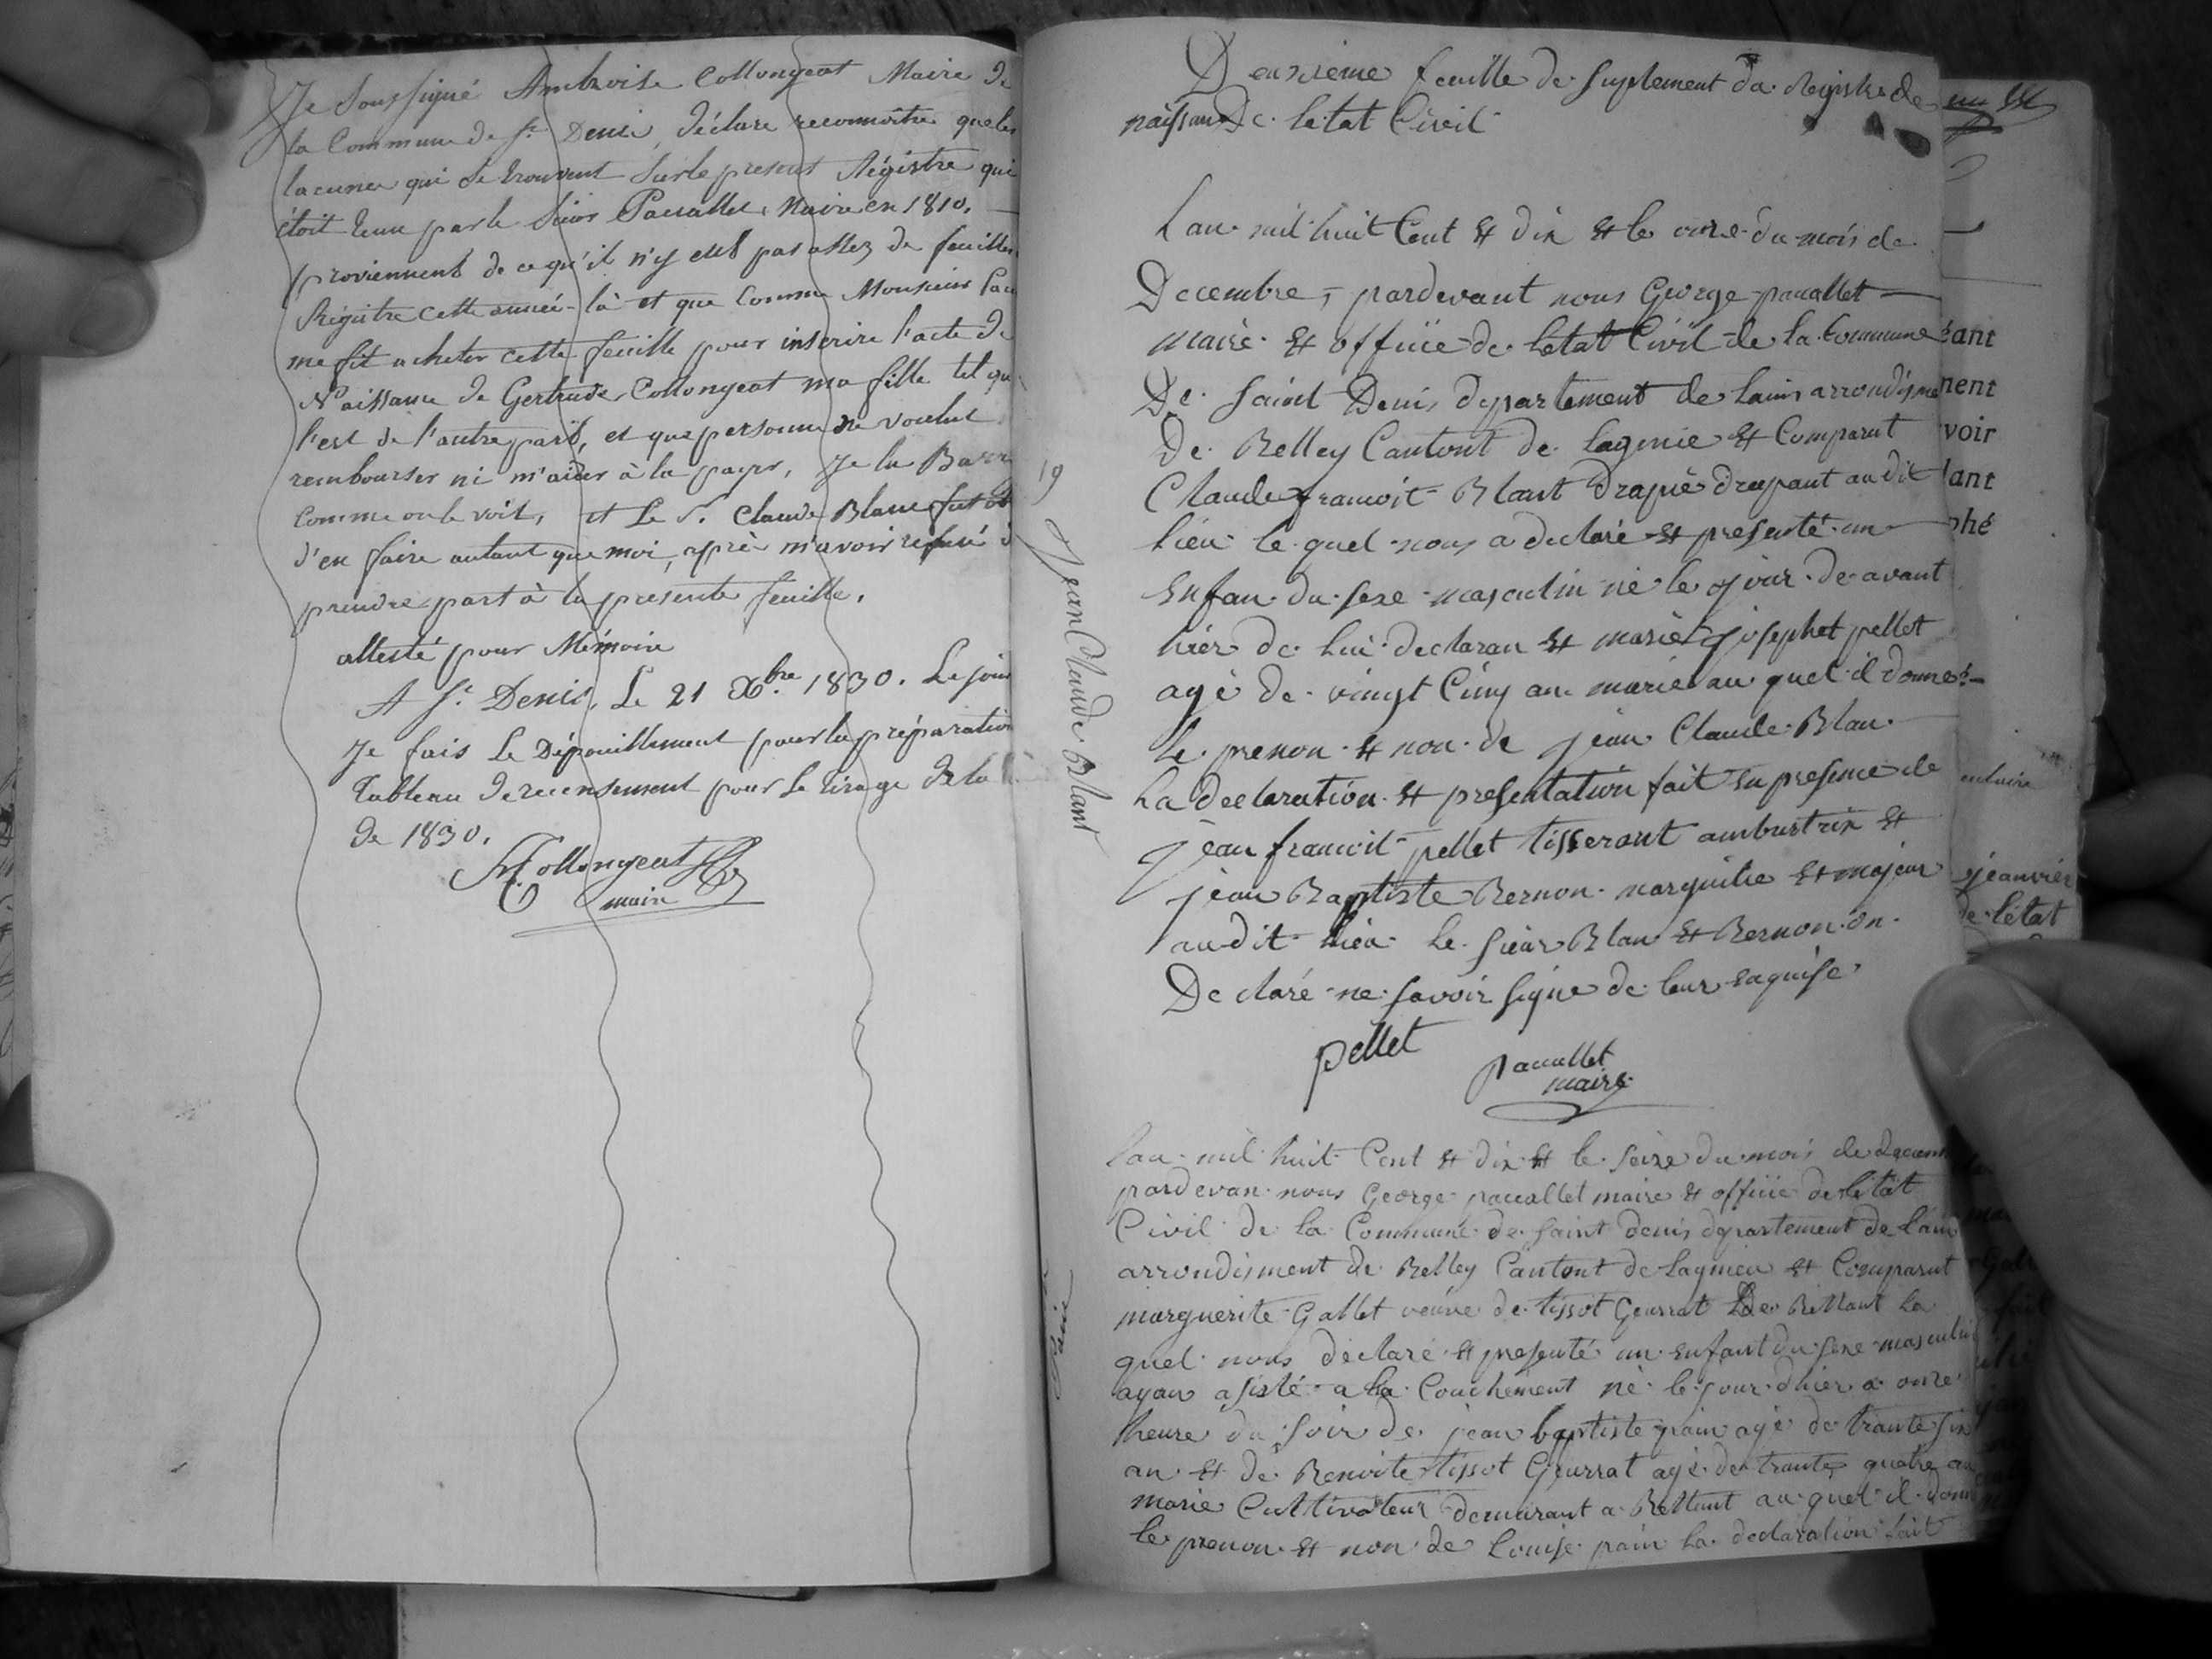 Je Soussigné Ambroise Collongeat Maire de
la Commune de St. Denis, déclare reconnoître que les
lacunes qui se trouvent sur le present Régistre qui
étoit tenu par le Sieur Pacallet, Maire en 1810.
proviennent de ce qu'il n'y eut pas assez de feuilles
Régistre cette année-là et que comme Monsieur
me fit acheter cette feuille pour inscrire l'acte de
Naissance de Gertrude Collongeat ma fille tel qu
l'est de l'autre part, et que personne ne voulut
rembourser ni m'aider à la payer, Je la Barre
comme on le voit, et Le S. Claude Blanc fut
d'en faire autant que moi, après m'avoir refusé
prendre part à la presente feuille.
attesté pour Mémoire
A St. Denis, Le 21 Xbre 1830. Le jour
Je fais le Dépouillement pour la préparation
Tableau de recensement pour le tirage de la
de 1830.
Collongeat
maire
Deuxieme feuille de suplement du Registre de
naissan De letat Civil
19
Jean Claude Blant
Lan mil huit Cent et dix et le onze du mois de
Decembre, pardevant nous George pacallet
maire et officie de letat Civil de la Commune
De saint Denis departement de lain arrondisme
De Belley Cantont de Lagnie et Comparut
Claude francoit Blant drapiè drepant audit
lieu le quel nous a declaré et presenté un
Enfan du sexe masculin nè le jour de avant
hièr de lui declaran et marie josephet pellet
agè de vingt Cinq an mariè au quel il donne
le prenon et non de jean Claude Blan
La declaration et presentation fait en presence de
jean francoit pellet tisserant et
jean Baptiste Bernon marguilie et majeur
audit lieu le sieur Blan et Bernon on
De claré ne savoir signe de leur enquise
pellet
pacallet
maire
lan mil huit Cent et dix et le seize du mois de decem
pardevan nous George pacallet maire et officie de letat
Civil de la Commune de saint denis departement de lain
arrondisment de Belley Cantont de Lagnieu et Comparut
marguerite Gallet veuve de tissot Geurrat De Bettant la
quel nous declare et presenté un enfant du sexe masculin
ayan asisté a la Couchement nè le jour dhier a onze
heure du soir de jean baptiste pain agè de trante six
an et de Benoite tissot Geurrat agè de trante quatre an
marie Cultivateur demurant a Bettant au quel il donne
le prenon et non de Louise pain la declaration fait
eant
nent
voir
ant
phé
jeanvier
de létat